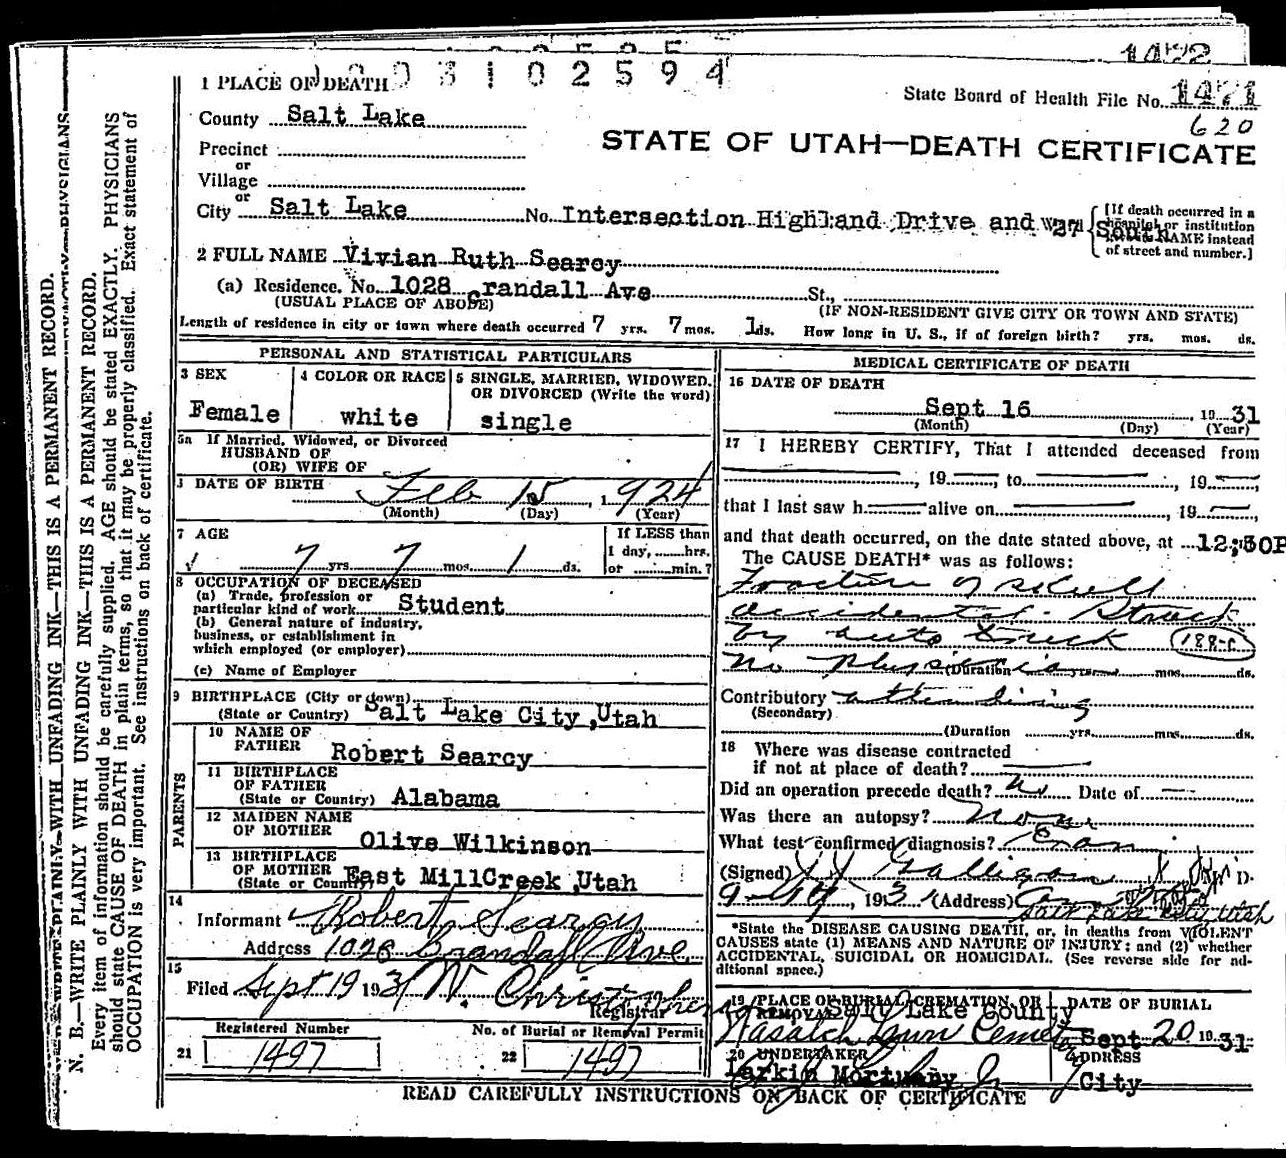 1472
1003102594
1 PLACE OF DEATH
State Board of Health File No. 1471
620
County Salt Lake
STATE OF UTAH—DEATH CERTIFICATE
Precinct
or
Village
or
City Salt Lake No. Intersection Highland Drive and 27 South
[If death occurred in a
hospital or institution
NAME instead
of street and number.]
2 FULL NAME Vivian Ruth Searcy
(a) Residence. No. 1028 Crandall Ave St.,
(USUAL PLACE OF ABODE)
(IF NON-RESIDENT GIVE CITY OR TOWN AND STATE)
Length of residence in city or town where death occurred 7 yrs. 7 mos. 1 ds. How long in U. S., if of foreign birth? yrs. mos. ds.
PERSONAL AND STATISTICAL PARTICULARS
3 SEX
Female
4 COLOR OR RACE
white
5 SINGLE, MARRIED, WIDOWED,
OR DIVORCED (Write the word)
single
5a If Married, Widowed, or Divorced
HUSBAND OF
(OR) WIFE OF
DATE OF BIRTH
Feb 15, 1924
(Month) (Day) (Year)
7 AGE
7 yrs 7 mos. 1 ds.
If LESS than
1 day, hrs.
or min.?
8 OCCUPATION OF DECEASED
(a) Trade, profession or
particular kind of work Student
(b) General nature of industry,
business, or establishment in
which employed (or employer)
(c) Name of Employer
9 BIRTHPLACE (City or town)
(State or Country) Salt Lake City, Utah
PARENTS
10 NAME OF
FATHER Robert Searcy
11 BIRTHPLACE
OF FATHER
(State or Country) Alabama
12 MAIDEN NAME
OF MOTHER Olive Wilkinson
13 BIRTHPLACE
OF MOTHER
(State or Country) East MillCreek, Utah
14
Informant Robert Searcy
Address 1028 Crandall Ave
15
Filed Sept 19 1931
Registrar
Registered Number
21 1497
No. of Burial or Removal Permit
22 1497
MEDICAL CERTIFICATE OF DEATH
16 DATE OF DEATH
Sept 16, 1931
(Month) (Day) (Year)
17 I HEREBY CERTIFY, That I attended deceased from
, 19 , to , 19
that I last saw h alive on , 19
and that death occurred, on the date stated above, at 12;30P
The CAUSE DEATH* was as follows:
Fracture of skull
accidental - Struck
by auto truck 188-c
no physician
(Duration yrs. mos. ds.
Contributory attending
(Secondary)
(Duration yrs. mos. ds.
18 Where was disease contracted
if not at place of death?
Did an operation precede death? no Date of
Was there an autopsy? None
What test confirmed diagnosis? Exam
(Signed) Galligan
, 1931 (Address)
Salt Lake City Utah
*State the DISEASE CAUSING DEATH, or, in deaths from VIOLENT
CAUSES state (1) MEANS AND NATURE OF INJURY; and (2) whether
ACCIDENTAL, SUICIDAL OR HOMICIDAL. (See reverse side for ad-
ditional space.)
19 PLACE OF BURIAL, CREMATION, OR
REMOVAL Salt Lake County
Wasatch Lawn Cemetery
DATE OF BURIAL
Sept 20 1931
20 UNDERTAKER
Larkin Mortuary
ADDRESS
City
READ CAREFULLY INSTRUCTIONS ON BACK OF CERTIFICATE
N. B.—WRITE PLAINLY WITH UNFADING INK—THIS IS A PERMANENT RECORD.
Every item of information should be carefully supplied. AGE should be stated EXACTLY. PHYSICIANS
should state CAUSE OF DEATH in plain terms, so that it may be properly classified. Exact statement of
OCCUPATION is very important. See instructions on back of certificate.